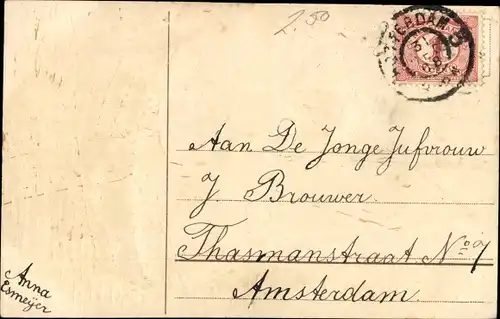 2.50
AMSTERDAM
Aan De Jonge Jufvrouw
J. Brouwer.
Thasmanstraat No 7
Amsterdam.
Anna
Esmeijer